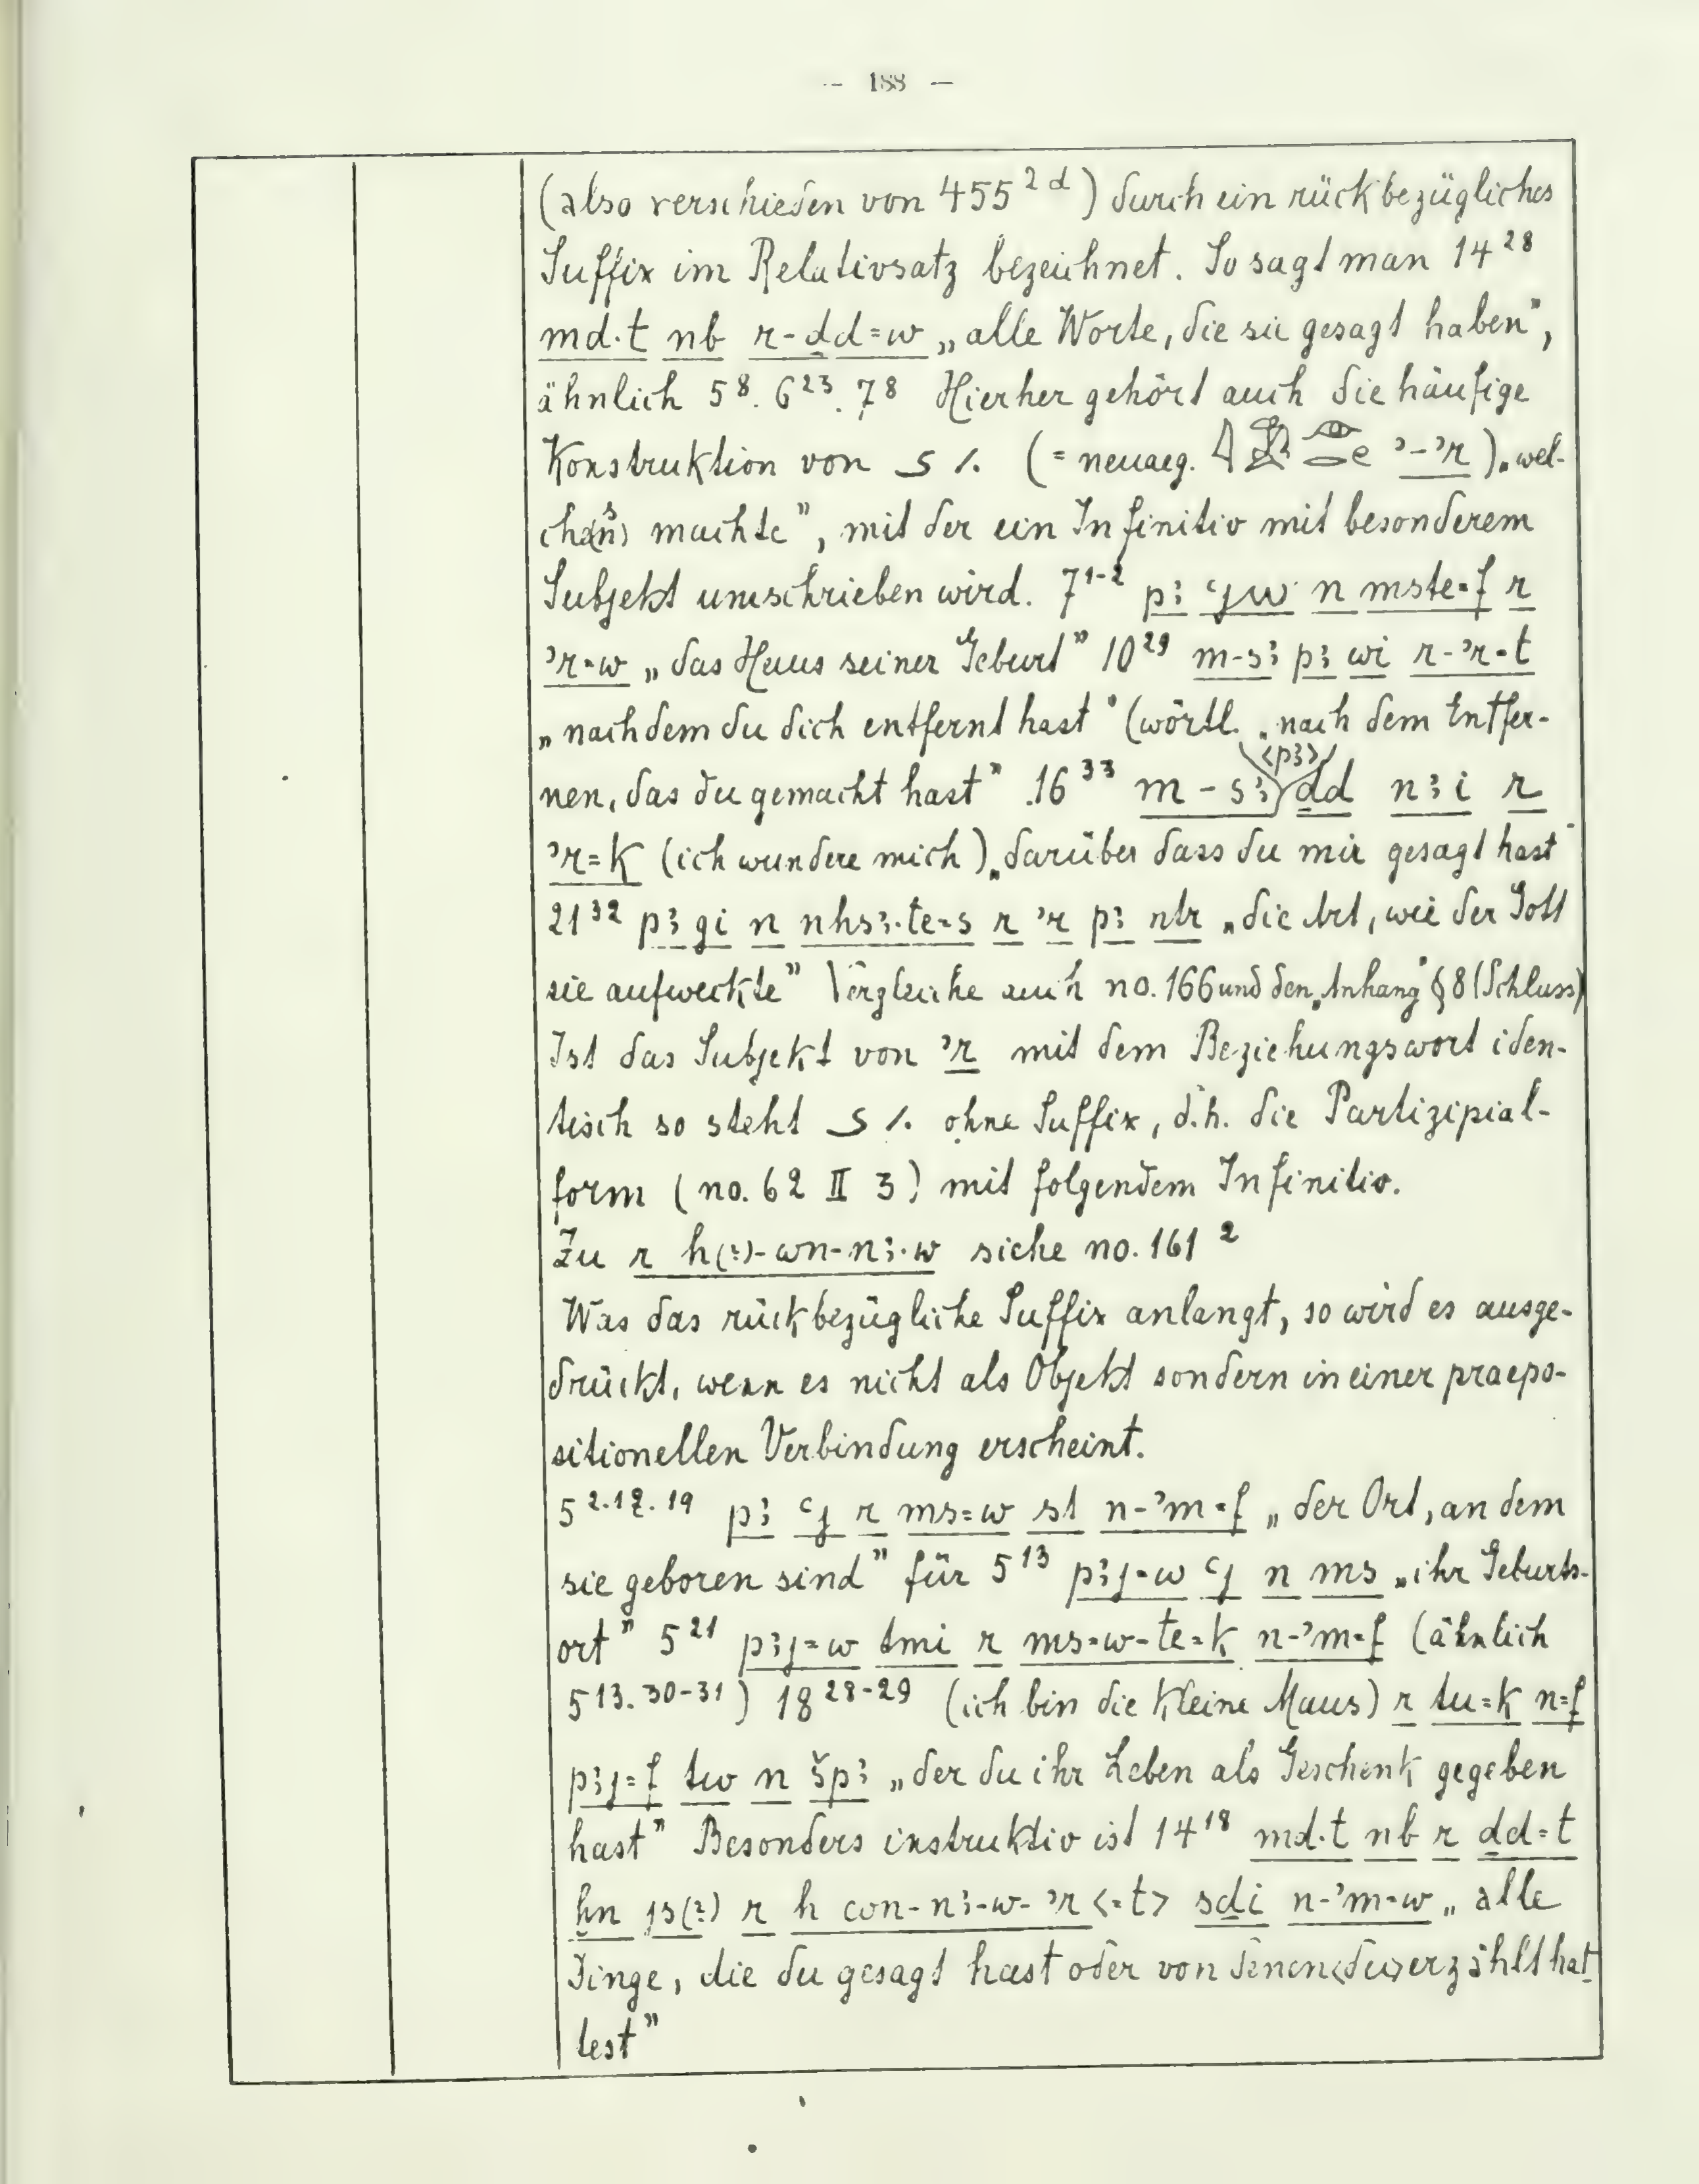 — 188 —
(also verschieden von 455 ²ᵈ) durch ein rückbezügliches
Suffix im Relativsatz bezeichnet. So sagt man 14²⁸
md·t nb r-ḏd=w „alle Worte, die sie gesagt haben”,
ähnlich 5⁸. 6²³. 7⁸ Hierher gehört auch die häufige
Konstruktion von (= neuaeg. ʾ-ʾr) „wel-
machte”, mit der ein Infinitiv mit besonderem
Subjekt umschrieben wird. 7¹⁻² pꜣ ꜥjw n mste=f r
ʾr=w „das Haus seiner Geburt” 10²⁹ m-sꜣ pꜣ wi r-ʾr=t
„nachdem du dich entfernt hast” (wörtl. „nach dem Entfer-
nen, das du gemacht hast” 16³³ m-sꜣ <pꜣ> ḏd nꜣi r
ʾr=k (ich wundere mich) „darüber dass du mir gesagt hast”
21³² pꜣ gi n nhsꜣ·te=s r ʾr pꜣ ntr „die Art, wie der Gott
sie aufweckte” Vergleiche auch no. 166 und den „Anhang” § 8 (Schluss)
Ist das Subjekt von ʾr mit dem Beziehungswort iden-
tisch so steht ohne Suffix, d.h. die Partizipial-
form (no. 62 II 3) mit folgendem Infinitiv.
Zu r h(?)-wn-nꜣ·w siehe no. 161 ²
Was das rückbezügliche Suffix anlangt, so wird es ausge-
drückt, wenn es nicht als Objekt sondern in einer praepo-
sitionellen Verbindung erscheint.
5 ²·¹⁷·¹⁹ pꜣ ꜥj r ms=w st n-ʾm=f „der Ort, an dem
sie geboren sind” für 5¹³ pꜣj=w ꜥj n ms „ihr Geburts-
ort” 5²¹ pꜣj=w tmi r ms=w-te=k n-ʾm=f (ähnlich
5¹³·³⁰⁻³¹) 18²⁸⁻²⁹ (ich bin die kleine Maus) r tu=k n=f
pꜣj=f tw n špꜣ „der du ihr Leben als Geschenk gegeben
hast” Besonders instruktiv ist 14¹⁸ md·t nb r ḏd=t
ẖn js(?) r h wn-nꜣ-w-ʾr<=t> sḏi n-ʾm=w „alle
Dinge, die du gesagt hast oder von denen <du> erzählt hat-
test”